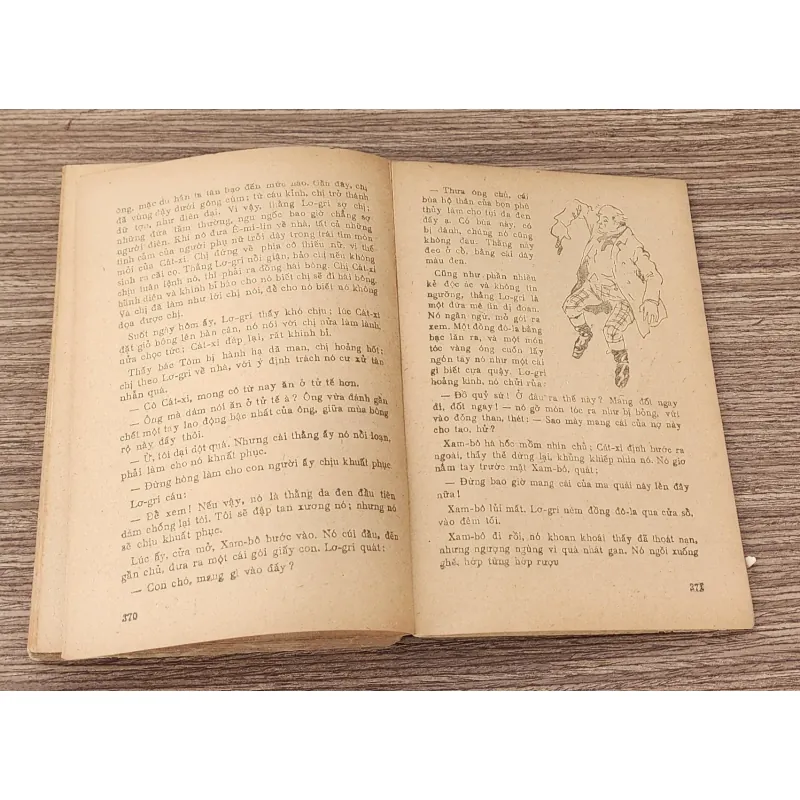 ông, mặc dù hắn ta tàn bạo đến mức nào. Gần đây, chị
đã vùng dậy dưới gông cùm; từ cáu kỉnh, chị trở thành
dữ tợn, như điên dại. Vì vậy, thằng Lơ-gri sợ chị;
những đứa tầm thường, ngu ngốc bao giờ chẳng sợ
người điên. Khi nó đưa Ê-mi-lin về nhà, tất cả những
tình cảm của người phụ nữ trỗi dậy trong trái tim mòn
mỏi của Cát-xi. Chị đứng về phía cô thiếu nữ, vì thế
sinh ra cãi cọ. Thằng Lơ-gri nổi giận, bảo chị nếu không
chịu tuân lệnh nó, thì phải ra đồng hái bông. Chị Cát-xi
hãnh diện và khinh bỉ bảo cho nó biết chị sẽ đi hái bông.
Và chị đã làm như lời chị nói, để cho nó biết nó không
dọa được chị.
Suốt ngày hôm ấy, Lơ-gri thấy khó chịu; lúc Cát-xi
đặt giỏ bông lên bàn cân, nó nói với chị nửa làm lành,
nửa chọc tức; Cát-xi đáp lại, rất khinh bỉ.
Thấy bác Tôm bị hành hạ dã man, chị hoảng hốt;
chị theo Lơ-gri về nhà, với ý định trách nó cư xử tàn
nhẫn quá.
— Cô Cát-xi, mong cô từ nay ăn ở tử tế hơn.
— Ông mà dám nói ăn ở tử tế à? Ông vừa đánh gần
chết một tay lao động bậc nhất của ông, giữa mùa bông
rộ này đấy thôi.
— Ừ, tôi dại dột quá. Nhưng cái thằng ấy nó nổi loạn,
phải làm cho nó khuất phục.
— Đừng hòng làm cho con người ấy chịu khuất phục
Lơ-gri cáu:
— Để xem! Nếu vậy, nó là thằng da đen đầu tiên
dám chống lại tôi. Tôi sẽ đập tan xương nó; nhưng nó
sẽ chịu khuất phục.
Lúc ấy, cửa mở, Xam-bô bước vào. Nó cúi đầu, đến
gần chủ, đưa ra một cái gói giấy con. Lơ-gri quát:
— Con chó, mang gì vào đấy?
370
— Thưa ông chủ, cái
bùa hộ thân của bọn phù
thủy làm cho tụi da đen
đấy ạ. Có bùa này, có
bị đánh, chúng nó cũng
không đau. Thằng này
đeo ở cổ, bằng cái dây
màu đen.
Cũng như phần nhiều
kẻ độc ác và không tín
ngưỡng, thằng Lơ-gri là
một đứa mê tín dị đoan.
Nó ngần ngừ, mở gói ra
xem. Một đồng đô-la bằng
bạc lăn ra, và một món
tóc vàng óng cuốn lấy
ngón tay nó như một cái
gì biết cựa quậy. Lơ-gri
hoảng kinh, nó chửi rủa:
— Đồ quỷ sứ! Ở đâu ra thế này? Mang đốt ngay
đi, đốt ngay! — nó gỡ món tóc ra như bị bỏng, vứt
vào đống than, thét: — Sao mày mang cái của nợ này
cho tao, hử?
Xam-bô há hốc mồm nhìn chủ; Cát-xi định bước ra
ngoài, thấy thế dừng lại, khủng khiếp nhìn nó. Nó giơ
nắm tay trước mặt Xam-bô, quát:
— Đừng bao giờ mang cái của ma quái này lên đây
nữa!
Xam-bô lủi mất. Lơ-gri ném đồng đô-la qua cửa sổ,
vào đêm tối.
Xam-bô đi rồi, nó khoan khoái thấy đã thoát nạn,
nhưng ngượng ngùng vì quá nhát gan. Nó ngồi xuống
ghế, hớp từng hớp rượu
371